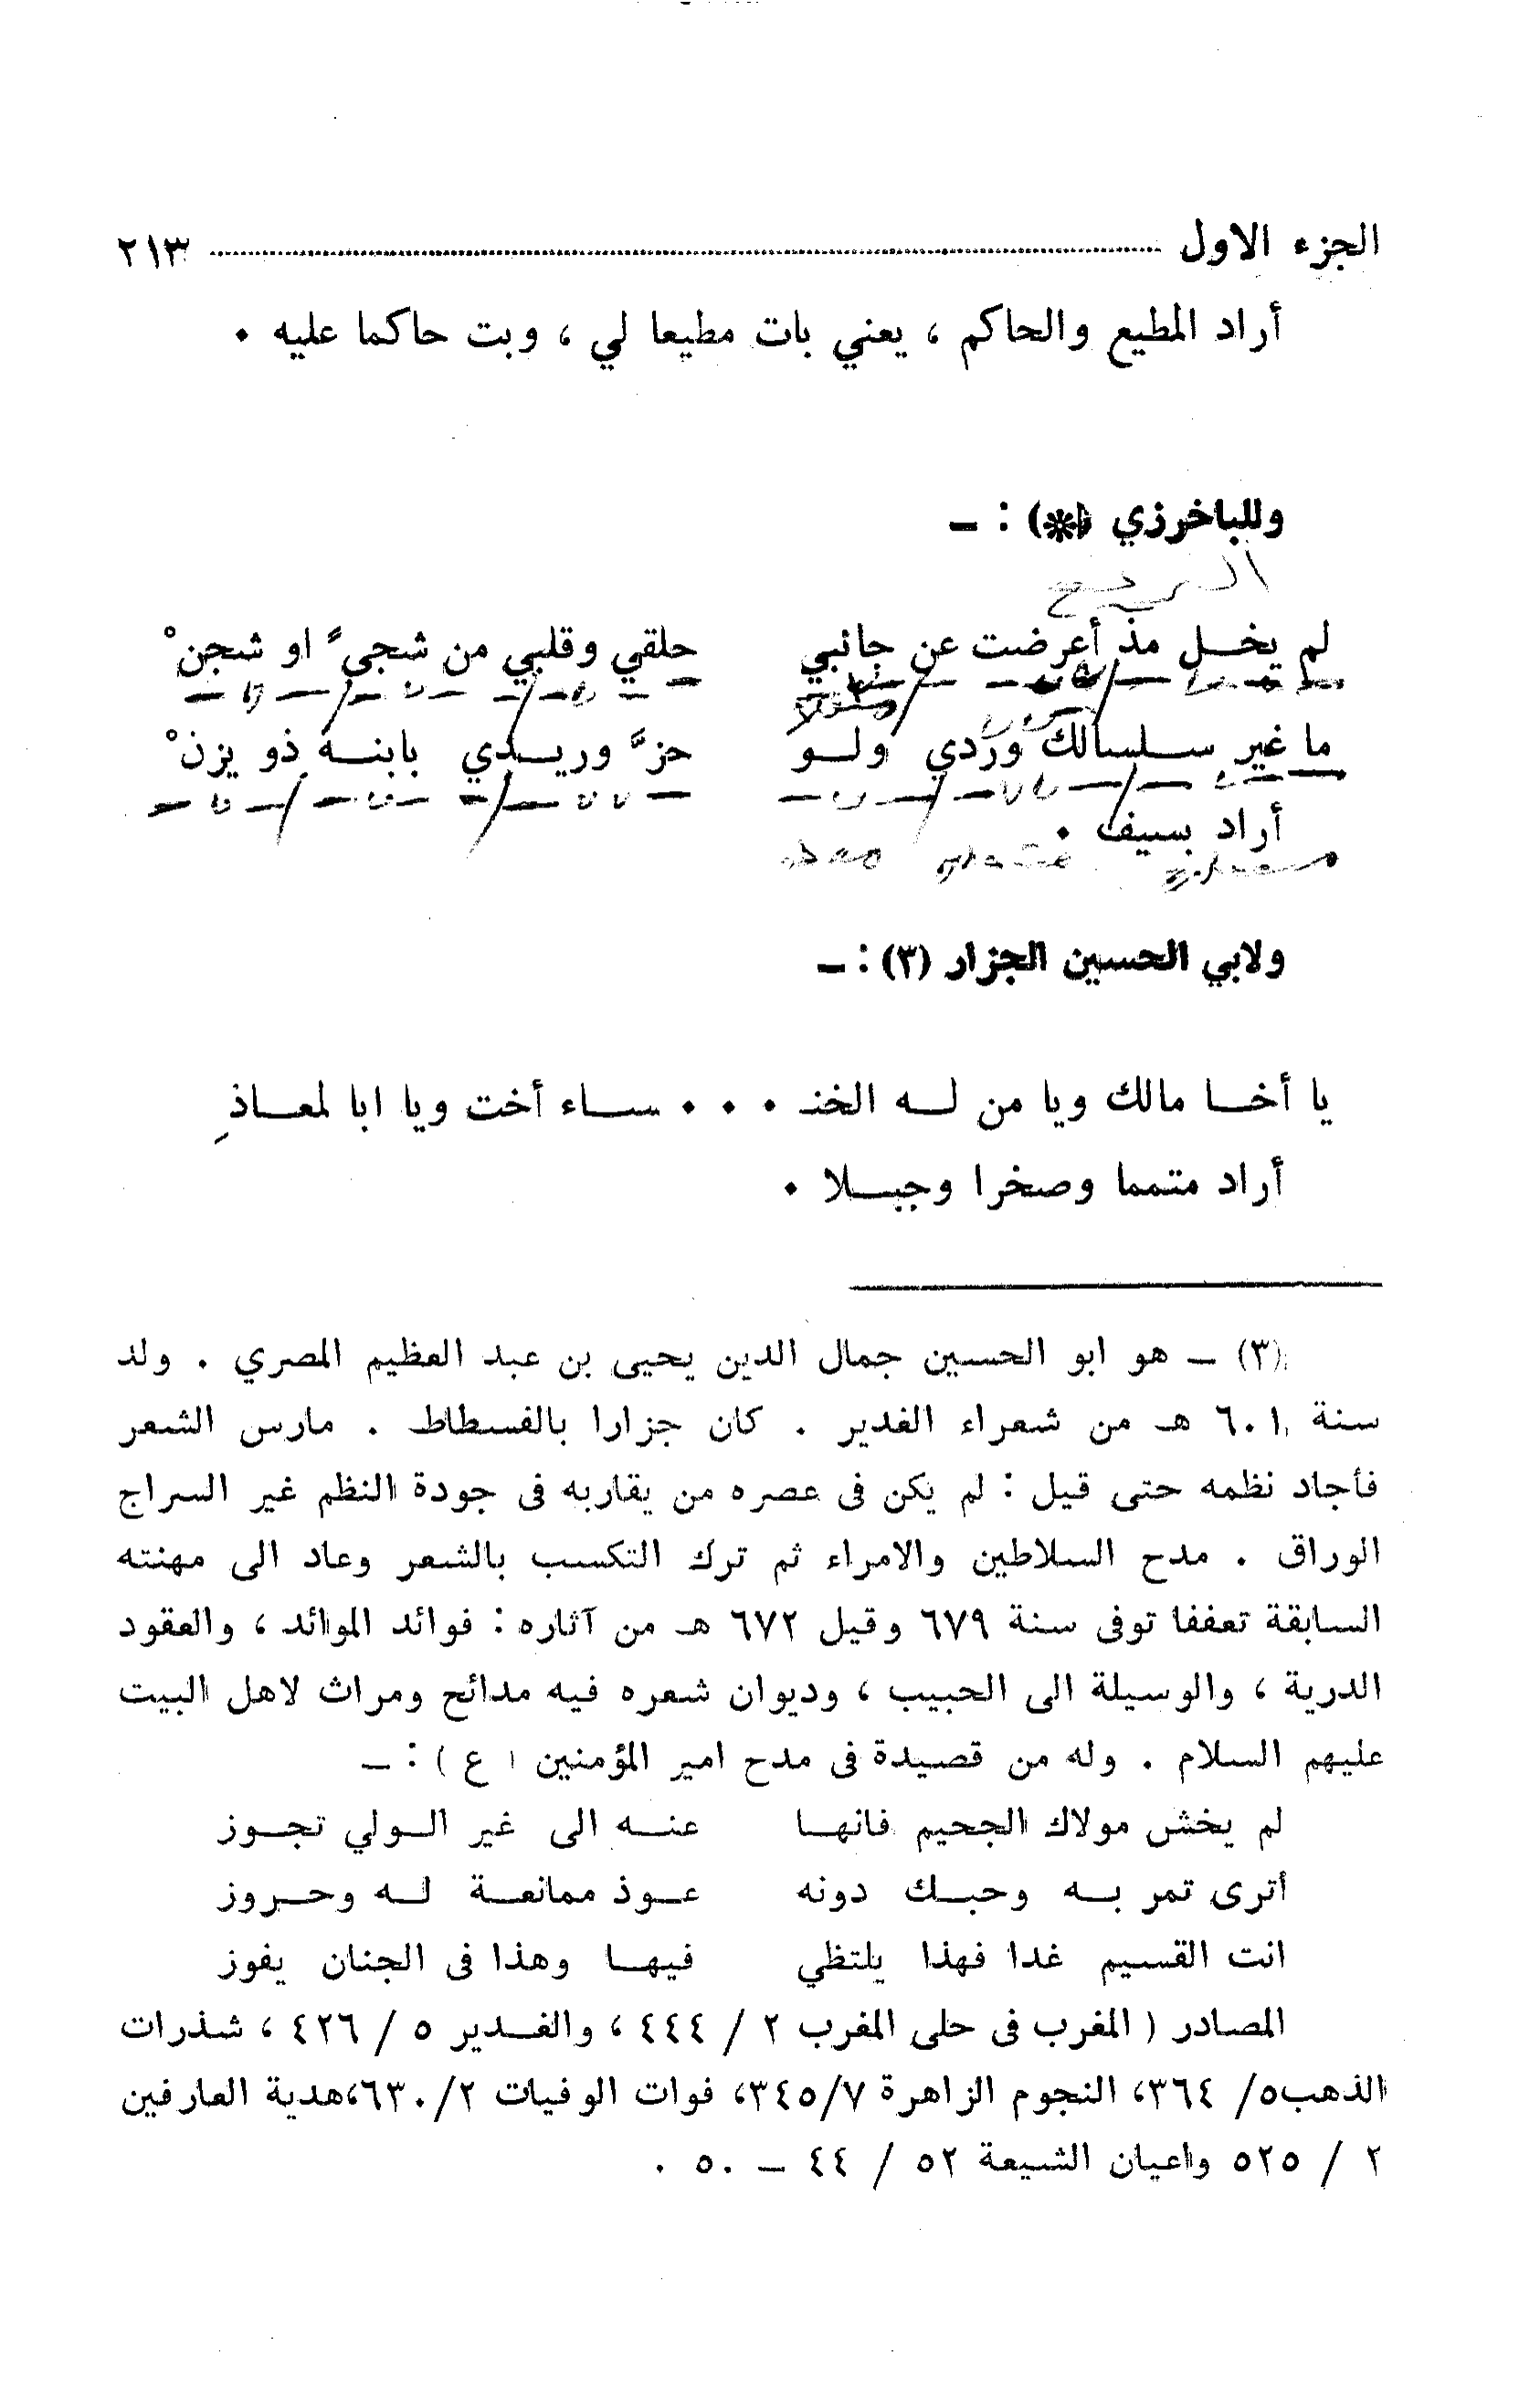 الجزء الاول ........ ٢١٣
أراد المطيع والحاكم ، يعني بات مطيعا لي ، وبت حاكما عليه .
وللباخرزي (*) : ــ
السريع
لم يخــل مذ أعرضت عن جانبي    حلقي وقلبي من شجىً او شجنْ
ما غير سلسالك وردي ولــو    حزَّ وريــدي بابنــة ذو يزنْ
أراد بسيف .
ولابي الحسين الجزار (٣) : ــ
يا أخــا مالك ويا من لــه الخنـ . . . ســاء أخت ويا ابا لمعــاذِ
أراد متمما وصخرا وجبــلا .
(٣) ــ هو ابو الحسين جمال الدين يحيى بن عبد العظيم المصري . ولد
سنة ٦٠١ هـ من شعراء الغدير . كان جزارا بالفسطاط . مارس الشعر
فأجاد نظمه حتى قيل : لم يكن فى عصره من يقاربه فى جودة النظم غير السراج
الوراق . مدح السلاطين والامراء ثم ترك التكسب بالشعر وعاد الى مهنته
السابقة تعففا توفى سنة ٦٧٩ وقيل ٦٧٢ هـ من آثاره : فوائد الموائد ، والعقود
الدرية ، والوسيلة الى الحبيب ، وديوان شعره فيه مدائح ومراث لاهل البيت
عليهم السلام . وله من قصيدة فى مدح امير المؤمنين ( ع ) : ــ
لم يخش مولاك الجحيم فانهــا    عنــه الى غير الــولي تجــوز
أترى تمر بــه وحبــك دونه    عــوذ ممانعــة لــه وحــروز
انت القسيم غدا فهذا يلتظي    فيهــا وهذا فى الجنان يفوز
المصادر ( المغرب فى حلى المغرب ٢ / ٤٤٤ ، والغــدير ٥ / ٤٢٦ ، شذرات
الذهب٥/ ٣٦٤، النجوم الزاهرة ٣٤٥/٧، فوات الوفيات ٦٣٠/٢،هدية العارفين
٢ / ٥٢٥ واعيان الشيعة ٥٢ / ٤٤ ــ ٥٠ .